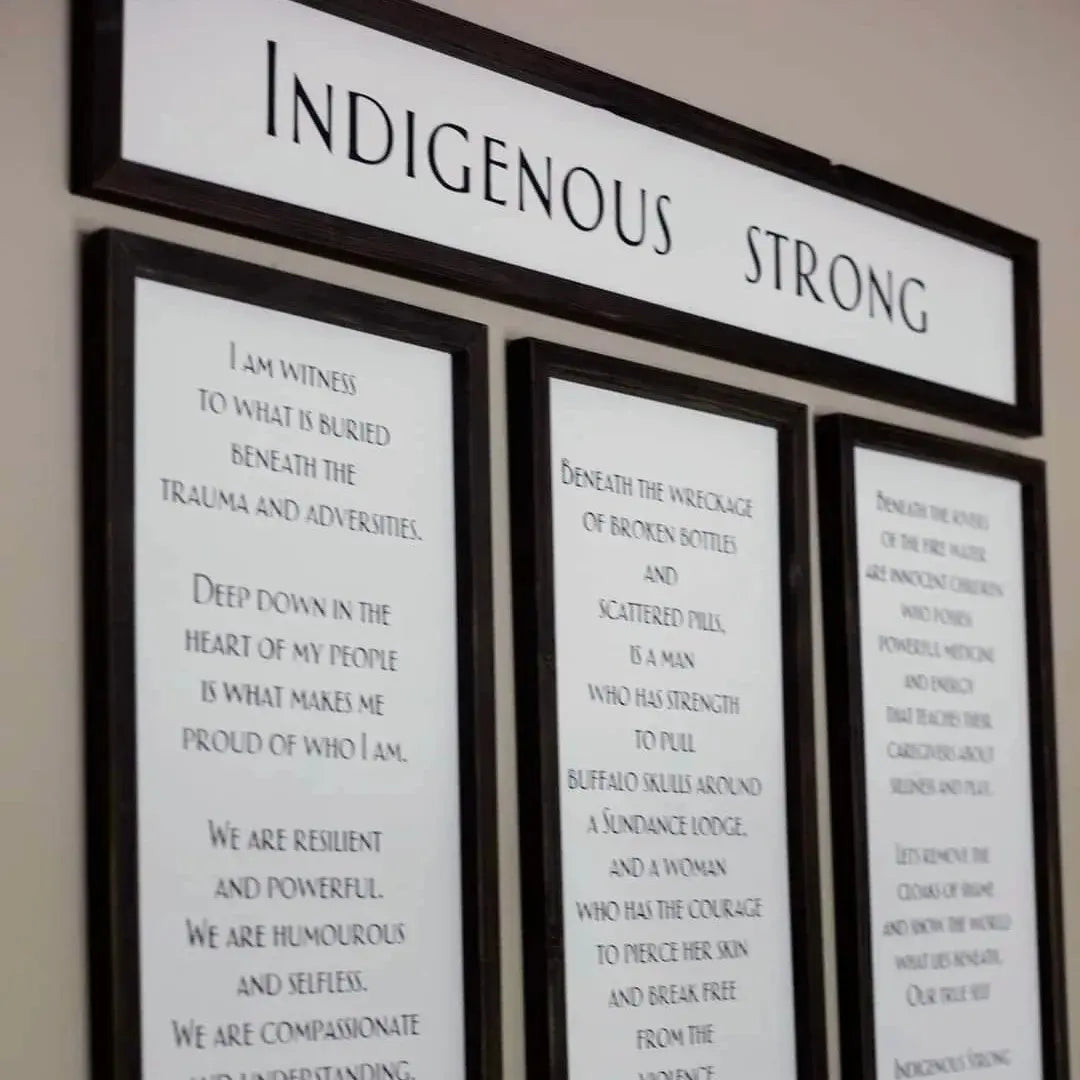 INDIGENOUS STRONG
I AM WITNESS
TO WHAT IS BURIED
BENEATH THE
TRAUMA AND ADVERSITIES.
DEEP DOWN IN THE
HEART OF MY PEOPLE
IS WHAT MAKES ME
PROUD OF WHO I AM.
WE ARE RESILIENT
AND POWERFUL.
WE ARE HUMOUROUS
AND SELFLESS.
WE ARE COMPASSIONATE
AND UNDERSTANDING.
BENEATH THE WRECKAGE
OF BROKEN BOTTLES
AND
SCATTERED PILLS,
IS A MAN
WHO HAS STRENGTH
TO PULL
BUFFALO SKULLS AROUND
A SUNDANCE LODGE,
AND A WOMAN
WHO HAS THE COURAGE
TO PIERCE HER SKIN
AND BREAK FREE
FROM THE
VIOLENCE
BENEATH THE RIVERS
OF THE FIRE WATER
ARE INNOCENT CHILDREN
WHO POSSESS
POWERFUL MEDICINE
AND ENERGY
THAT TEACHES THEIR
CAREGIVERS ABOUT
SILLINESS AND PLAY.
LETS REMOVE THE
CLOAKS OF SHAME
AND SHOW THE WORLD
WHAT LIES BENEATH,
OUR TRUE SELF
INDIGENOUS STRONG